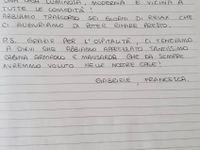 UNA CASA LUMINOSA, MODERNA E VICINA A
TUTTE LE COMODITÀ!
ABBIAMO TRASCORSO SEI GIORNI DI RELAX CHE
CI AUGURIAMO DI POTER RIFARE PRESTO.
P.S. GRAZIE PER L'OSPITALITÀ, CI TENEVAMO
A DIRVI CHE ABBIAMO APPREZZATO TANTISSIMO
CABINA ARMADIO E MANSARDA CHE DA SEMPRE
AVREMMO VOLUTO NELLE NOSTRE CASE!
GABRIELE, FRANCESCA.